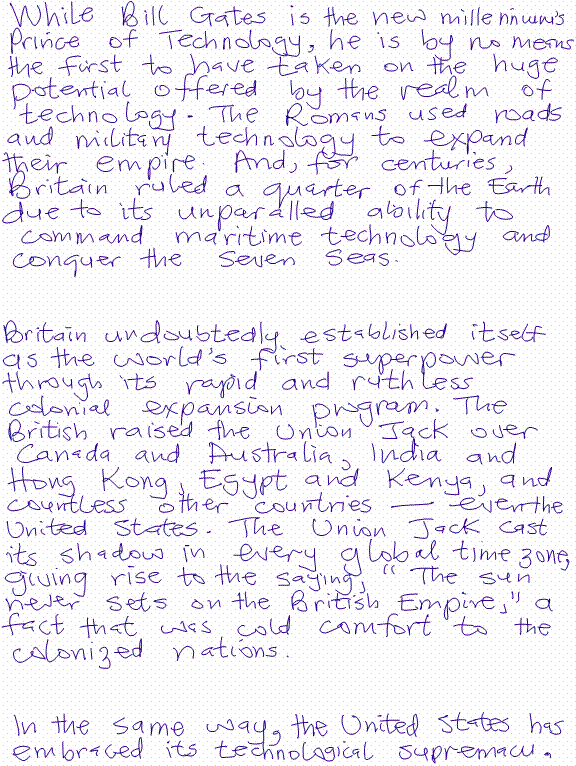 While Bill Gates is the new millennium's
Prince of Technology, he is by no means
the first to have taken on the huge
potential offered by the realm of
technology. The Romans used roads
and military technology to expand
their empire. And, for centuries,
Britain ruled a quarter of the Earth
due to its unparalled ability to
command maritime technology and
conquer the Seven Seas.
Britain undoubtedly established itself
as the world's first superpower
through its rapid and ruthless
colonial expansion program. The
British raised the Union Jack over
Canada and Australia, India and
Hong Kong, Egypt and Kenya, and
countless other countries — even the
United States. The Union Jack cast
its shadow in every global time zone,
giving rise to the saying, "The sun
never sets on the British Empire," a
fact that was cold comfort to the
colonized nations.
In the same way, the United States has
embraced its technological supremacy.